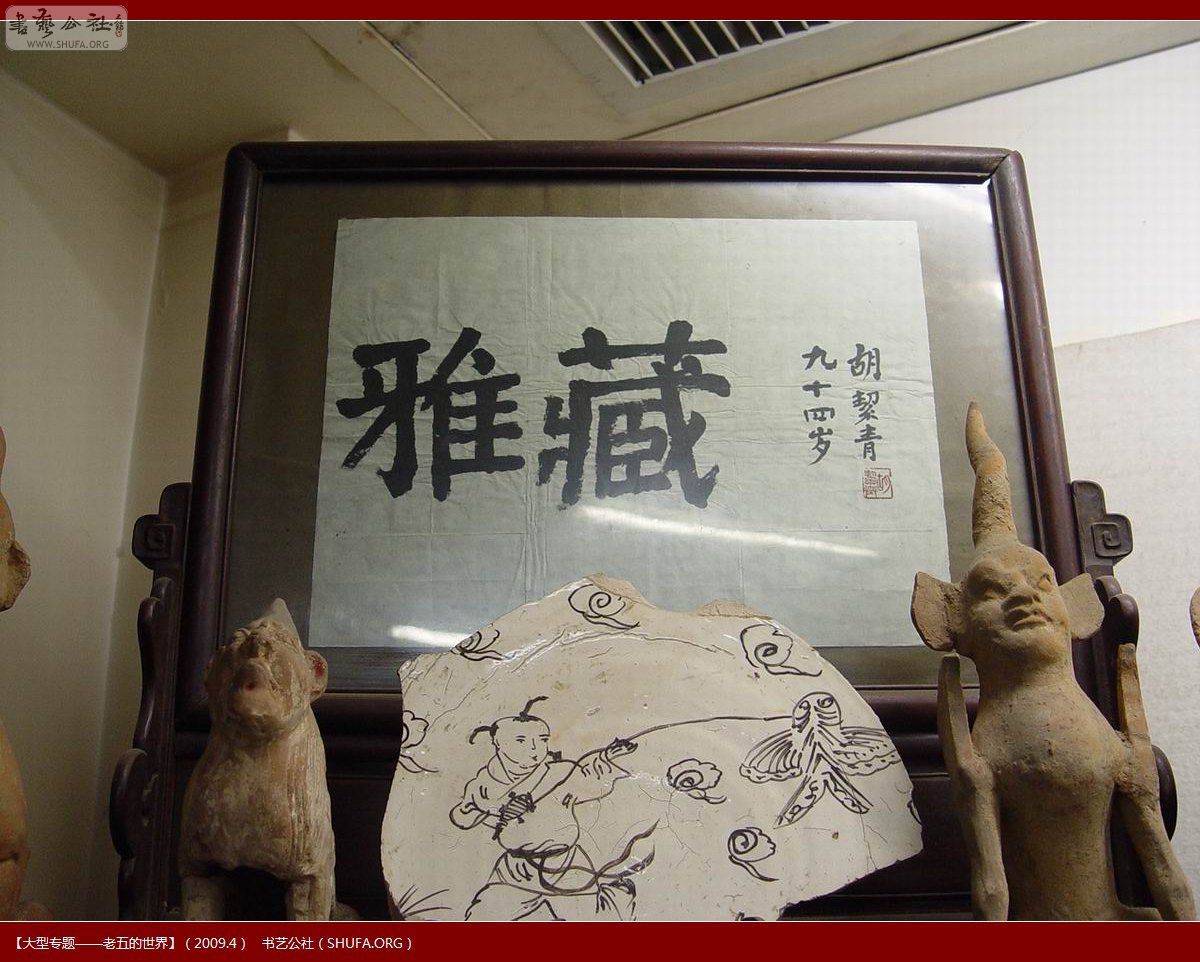 書藝公社
WWW.SHUFA.ORG
雅藏
胡絜青
九十四岁
【大型专题——老五的世界】（2009.4） 书艺公社（SHUFA.ORG）